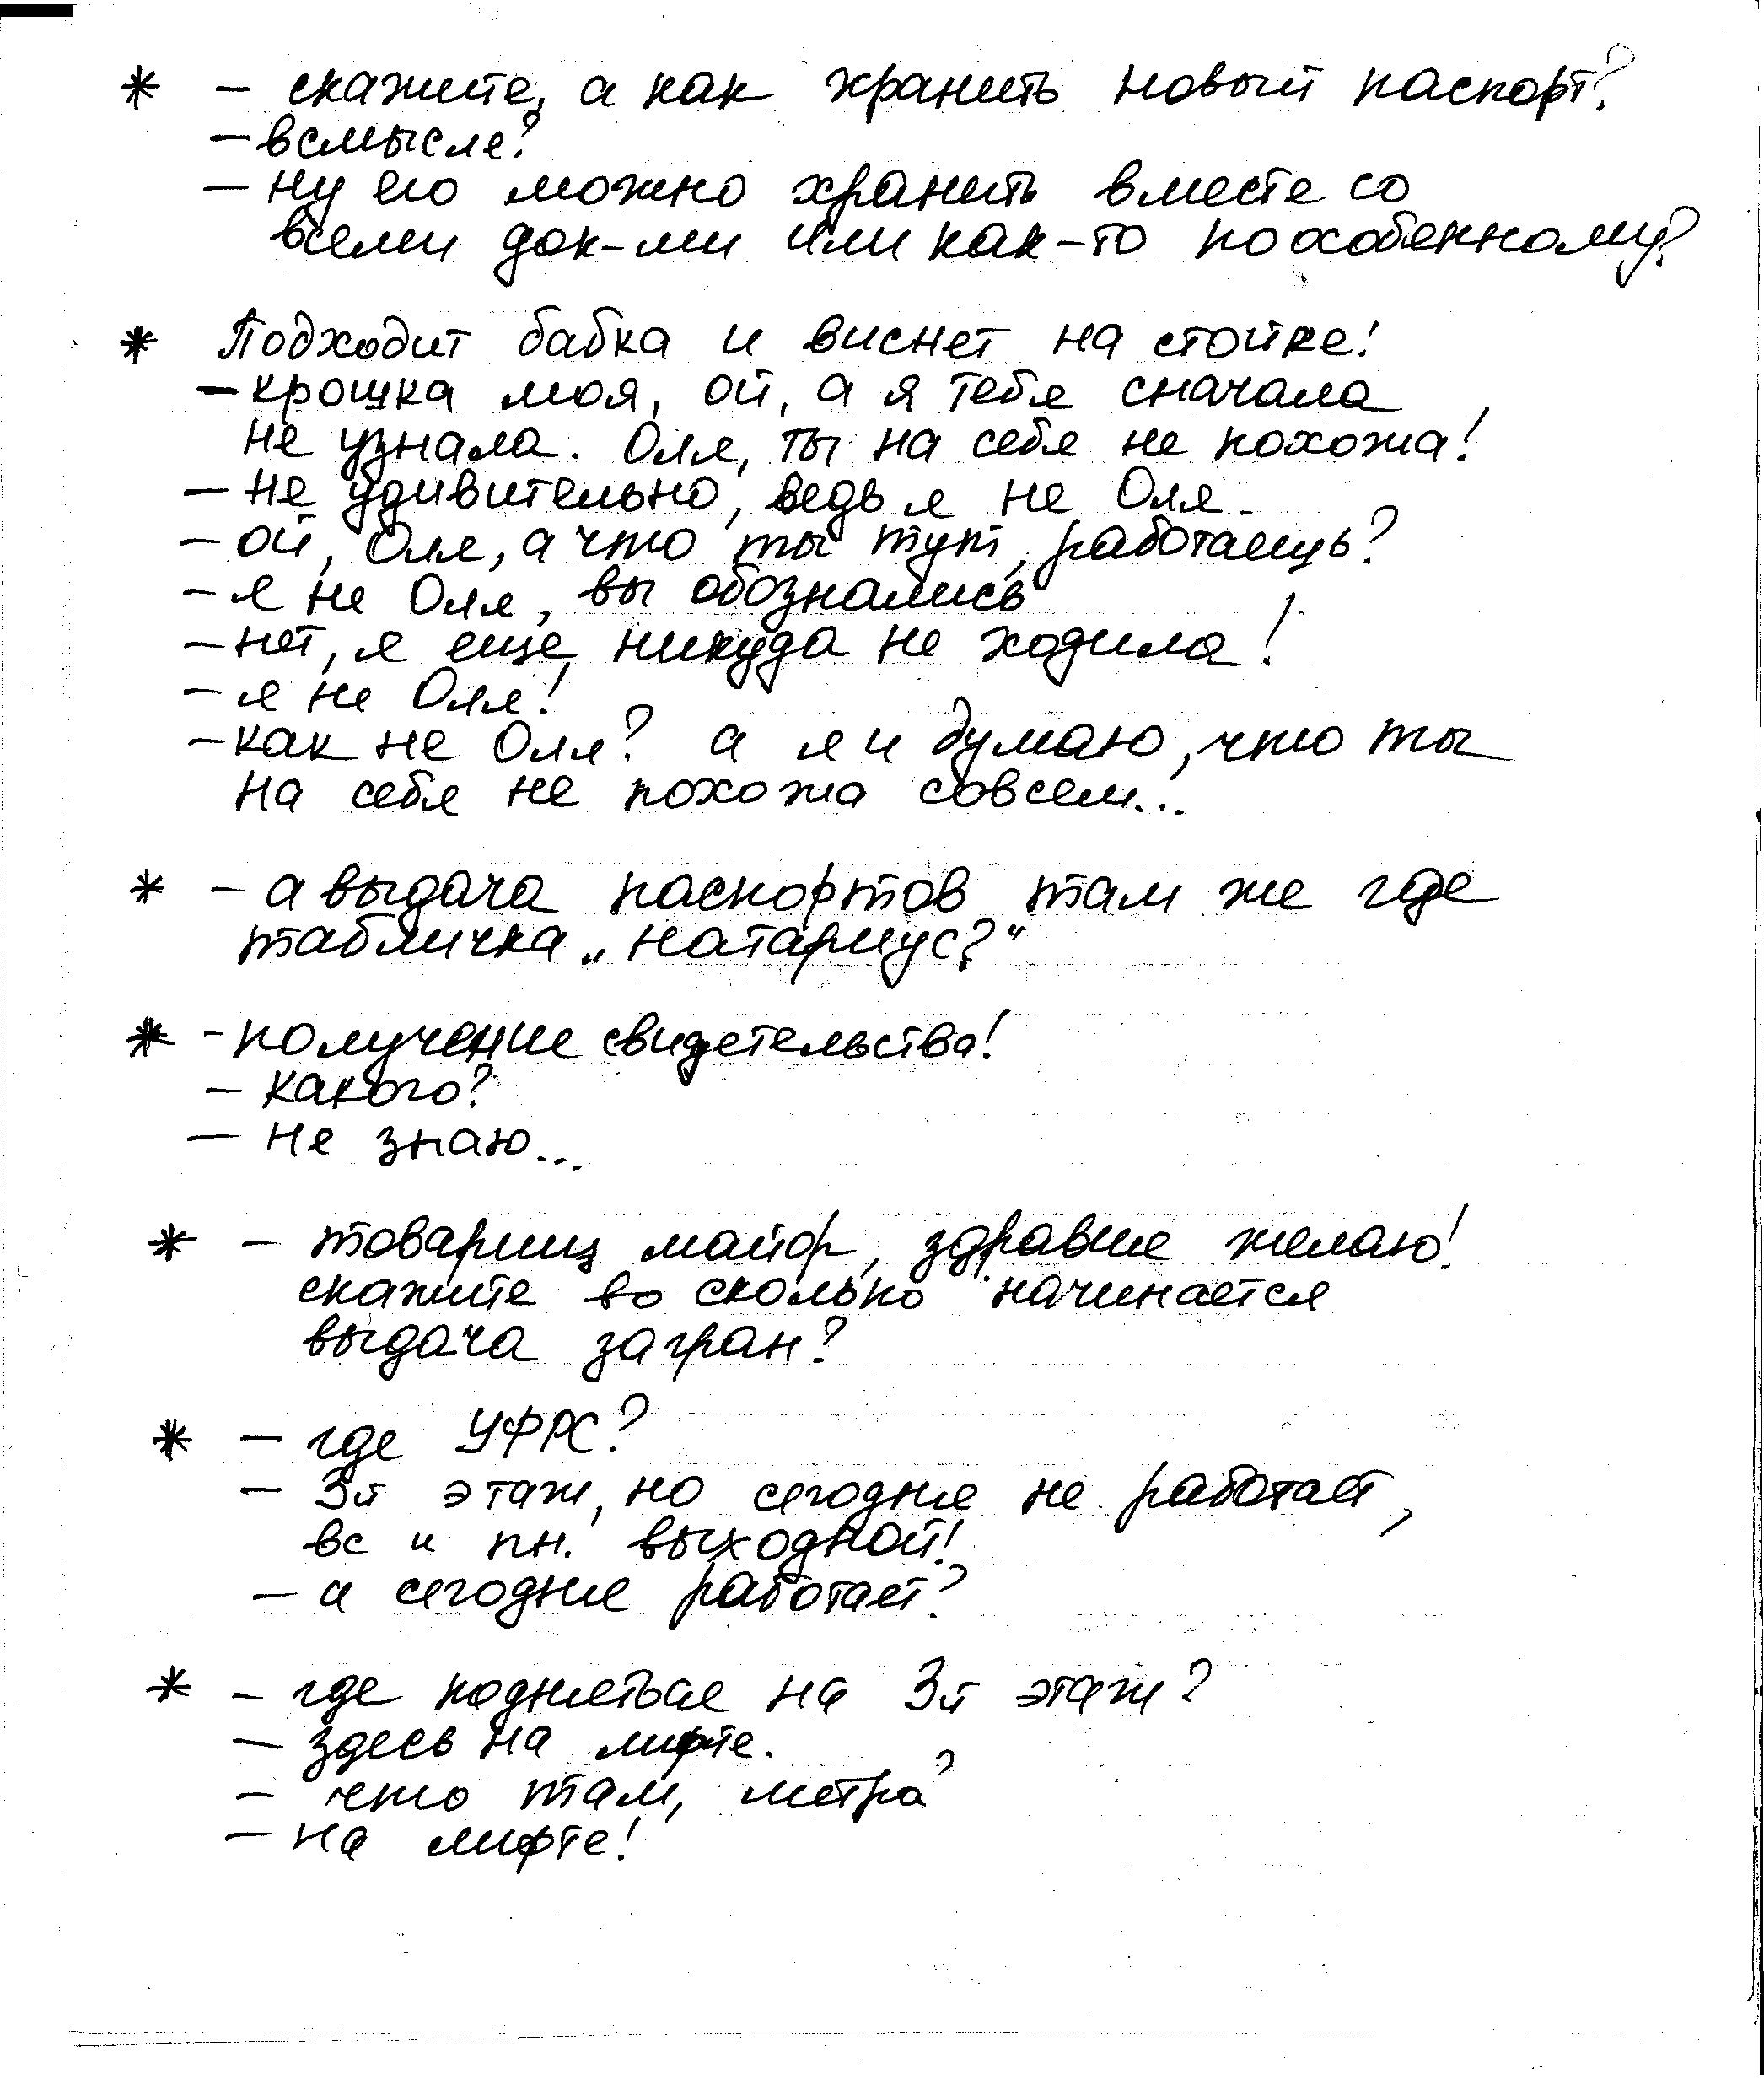 * - скажите, а как хранить новый паспорт?
- всмысле?
- ну его можно хранить вместе со
всеми док-ми или как-то поособенному?
* Подходит бабка и виснет на стойке!
- крошка моя, ой, а я тебя сначала
не узнала. Оля, ты на себя не похожа!
- не удивительно, ведь я не Оля.
- ой, Оля, а что ты тут, работаешь?
- я не Оля, вы обознались
- нет, я еще никуда не ходила!
- я не Оля!
- как не Оля? а я и думаю, что ты
на себя не похожа совсем...
* - а выдача паспортов там же где
табличка „натариус?“
* - получение свидетельства!
- какого?
- не знаю...
* - товарищ майор, здравие желаю!
скажите во сколько начинается
выдача загран?
* - где УФРС?
- 3й этаж, но сегодня не работает,
вс и пн. выходной!
- а сегодня работает?
* - где подняться на 3й этаж?
- здесь на лифте.
- что там, метра?
- на лифте!